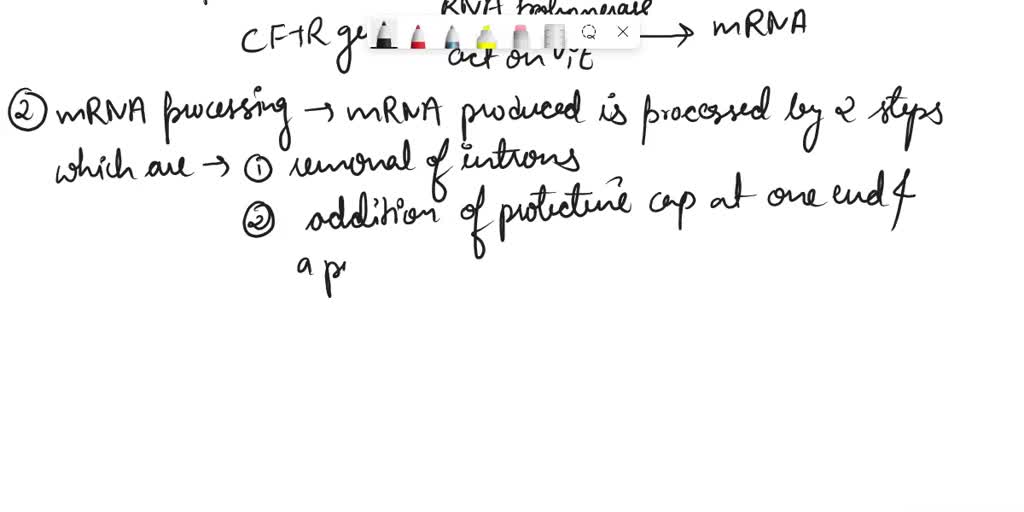 RNA polymerase
CFTR ge → mRNA
act on it
② mRNA processing → mRNA produced is processed by 2 steps
which are → ① removal of introns
② addition of protective cap at one end &
a p